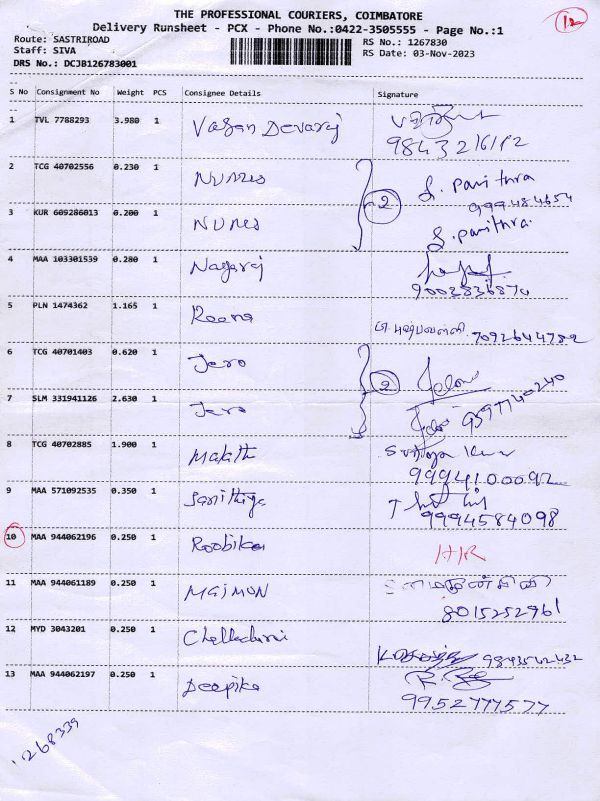 12
THE PROFESSIONAL COURIERS, COIMBATORE
Delivery Runsheet - PCX - Phone No.:0422-3505555 - Page No.:1
Route: SASTRIROAD RS No.: 1267830
Staff: SIVA RS Date: 03-Nov-2023
DRS No.: DCJB126783001
S No Consignment No Weight PCS Consignee Details Signature
1 TVL 7788293 3.980 1 Vasan Devaraj
9843216112
2 TCG 40702556 0.230 1 NUMES 2 S. Pavithra
999484654
3 KUR 609286013 0.200 1 NUMES S. pavithra.
4 MAA 103301539 0.280 1 Nagaraj
9002836870
5 PLN 1474362 1.165 1 Reena 7092644782
6 TCG 40701403 0.620 1 Jero 2
7 SLM 331941126 2.630 1 Jero 9597740240
8 TCG 40702885 1.900 1 Malathi
9994100092
9 MAA 571092535 0.350 1 Sanithiya
9994584098
10 MAA 944062196 0.250 1 Roobika
11 MAA 944061189 0.250 1 MAIMON
8015252961
12 MYD 3043201 0.250 1 Chelladurai
9843542432
13 MAA 944062197 0.250 1 Deepika
9952777577
1268339